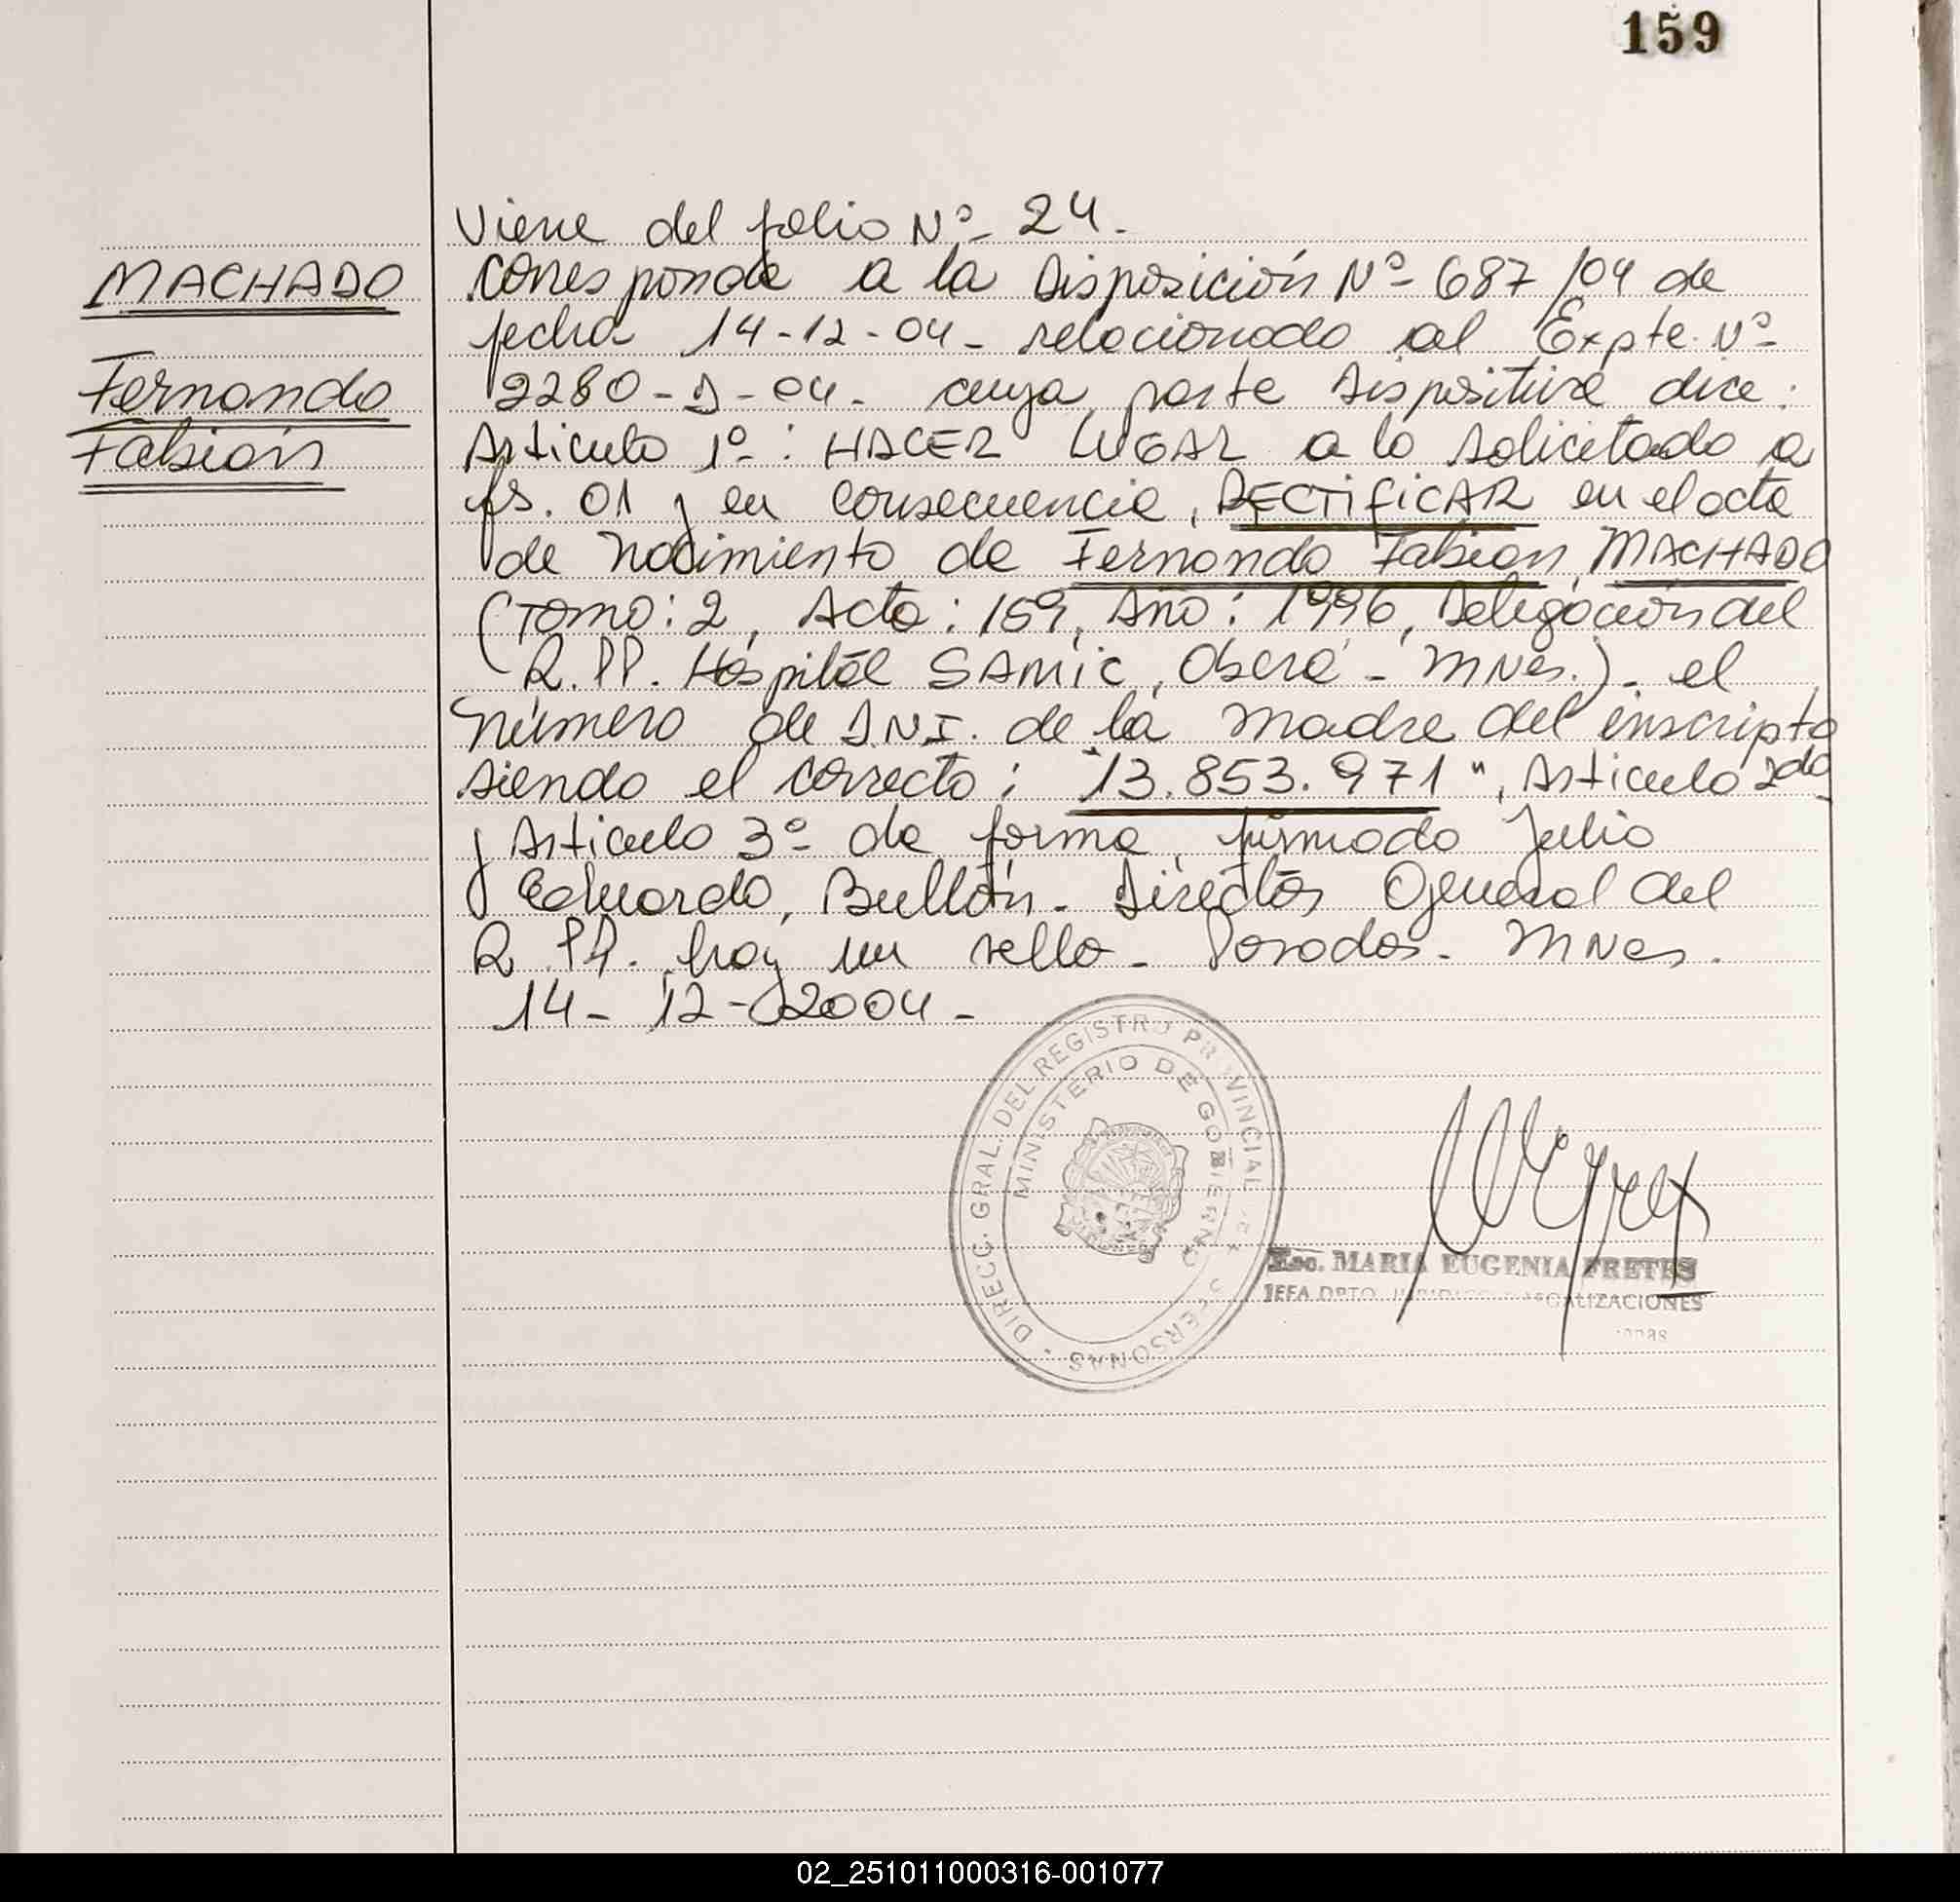 159
Viene del folio Nº 24.
MACHADO
Corresponde a la Disposición Nº 687/04 de
fecha 14-12-04 - relacionado al Expte. Nº
Fernando
2280-D-04. cuya parte dispositiva dice:
Fabián
Artículo 1º: HACER LUGAR a lo solicitado a
fs. 01 y en consecuencia, RECTIFICAR en el acta
de Nacimiento de Fernando Fabián, MACHADO
(Tomo: 2, Acta: 159, Año: 1996, Delegación del
R.PP. Hospital SAMIC, Oberá - MNes.). el
número de DNI. de la madre del inscripto
siendo el correcto: "13.853.971", Artículo 2do
y Artículo 3º de forma, firmado Julio
Eduardo, Bullón. Director General del
R.PP. hay un sello - Posadas. MNes.
14-12-2004-
DIRECC. GRAL. DEL REGISTRO PROVINCIAL DE PERSONAS
MINISTERIO DE GOBIERNO
Esc. MARIA EUGENIA FRETES
JEFA DPTO.
02_251011000316-001077